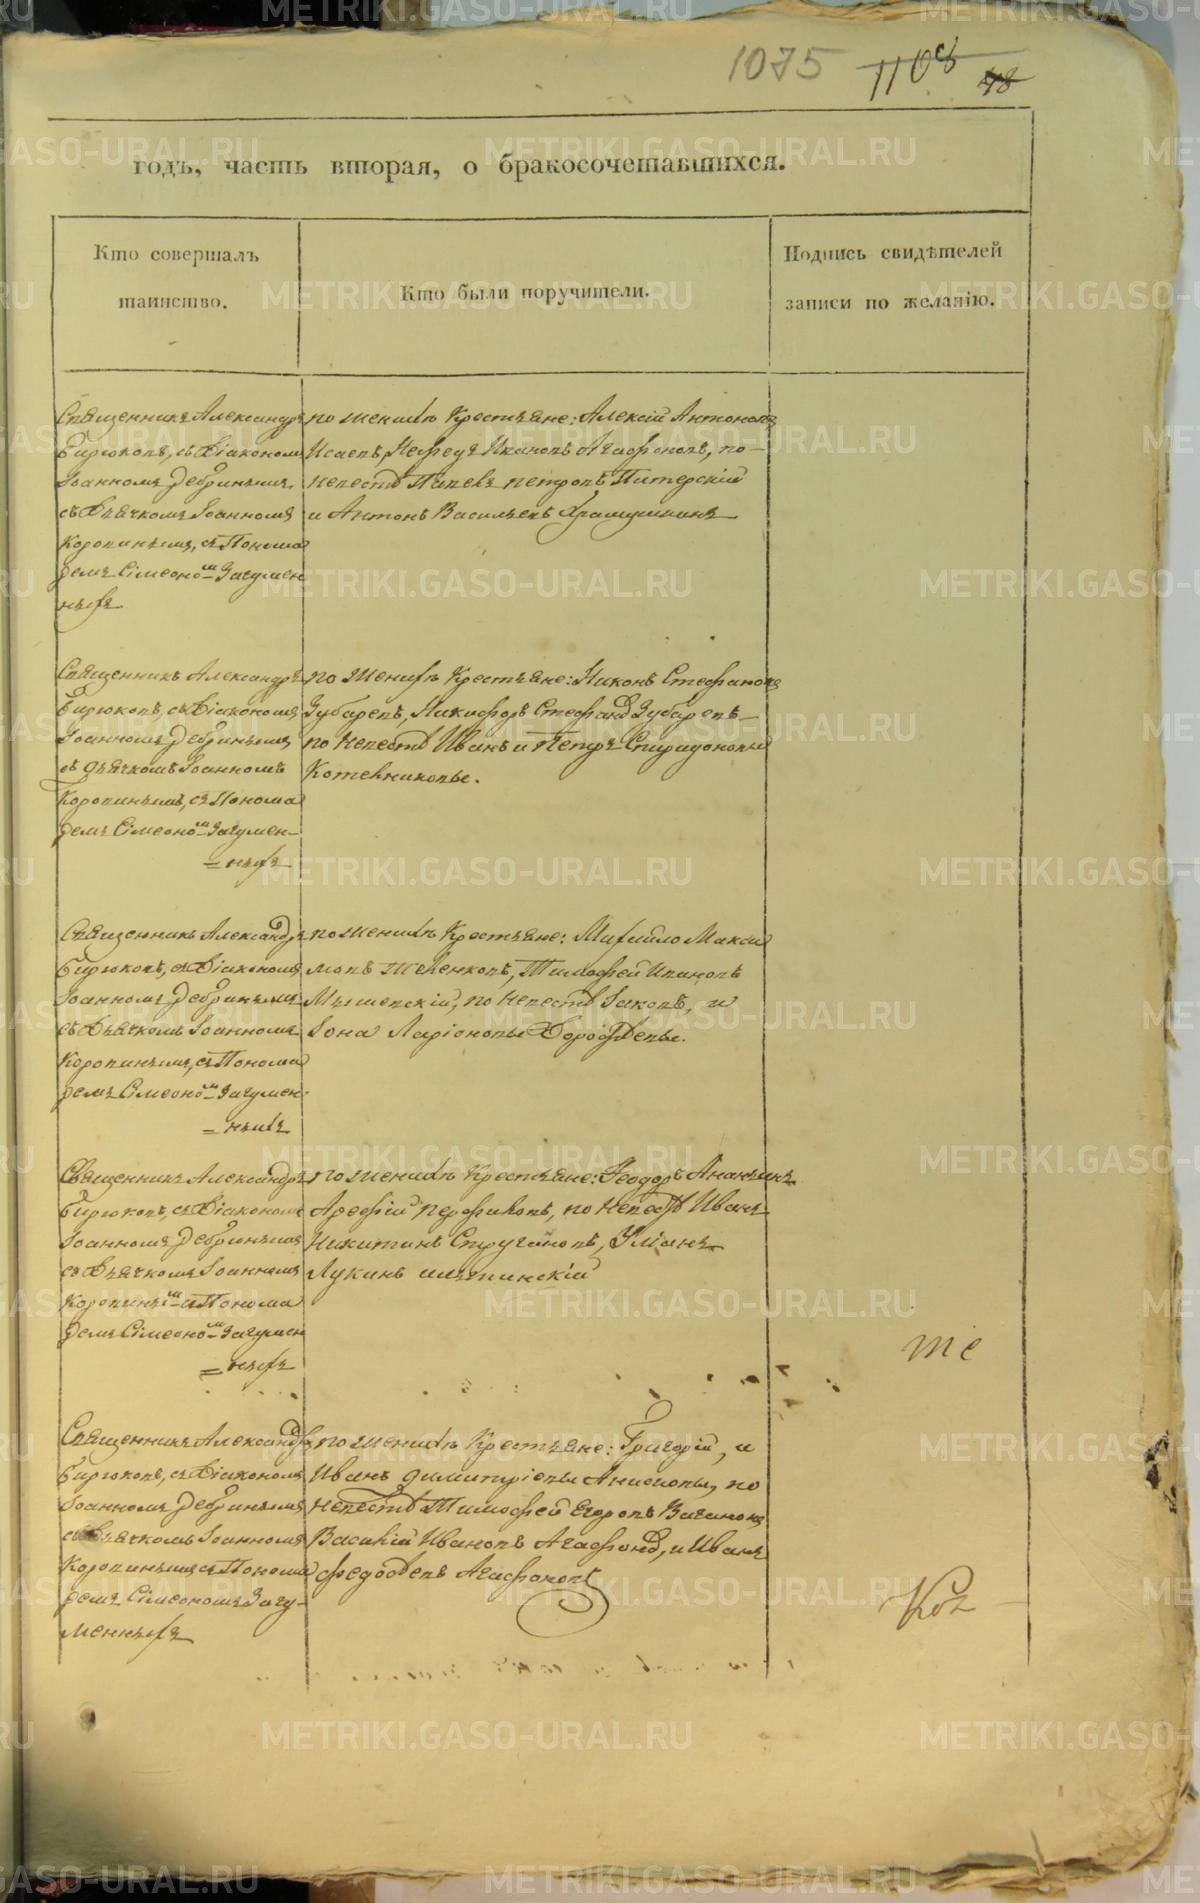 1075 1108 48
годъ, часть вторая, о бракосочетавшихся.
Кто совершалъ
таинство.
Кто были поручители.
Подпись свидѣтелей
записи по желанію.
Священникъ Александръ
Бирюковъ, съ Діакономъ
Іоанномъ Дебринымъ
съ Дьячкомъ Іоанномъ
Коровинымъ, съ Понома
ремъ Сімеономъ Загумен
нымъ
по женихѣ Крестьяне: Алексій Антоновъ
Исаевъ, Нефедъ Ивановъ Агафоновъ, по
невестѣ Павелъ Петровъ Питерскій
и Антонъ Васильевъ Храмушинъ
Священникъ Александръ
Бирюковъ, съ Діакономъ
Іоанномъ Дебринымъ
съ дьячкомъ Іоанномъ
Коровинымъ, съ Понома
ремъ Сімеономъ Загумен-
=нымъ
по женихѣ Крестьяне: Никонъ Стефановъ
Зубаревъ, Никифоръ Стефановъ Зубаревъ
по невестѣ Иванъ и Петръ Спиридоновы
Котельниковы.
Священникъ Александръ
Бирюковъ, съ Діакономъ
Іоанномъ Дебринымъ
съ Дьячкомъ Іоанномъ
Коровинымъ, съ Понома
ремъ Сімеономъ Загумен
=нымъ
по женихѣ Крестьяне: Михайло Макси
мовъ Телѣнковъ, Тимофей Ивановъ
Мышевскій, по невестѣ Іаковъ, и
Іона Ларіоновы Дорофѣевы.
Священникъ Александръ
Бирюковъ, съ Діакономъ
Іоанномъ Дебринымъ
съ Дьячкомъ Іоанномъ
Коровинымъ съ Понома
ремъ Сімеономъ Загумен
=нымъ
по женихѣ Крестьяне: Ѳеодоръ Ананьинъ
по невестѣ Иванъ
Никитинъ Стругановъ,
Лукинъ
те
Священникъ Александръ
Бирюковъ, съ Діакономъ
Іоанномъ Дебринымъ
съ Дьячкомъ Іоанномъ
Коровинымъ съ Понома
ремъ Сімеономъ Загу-
меннымъ
по женихѣ Крестьяне: Григорій, и
Иванъ Димитріевы Анисимовы, по
невестѣ Тимофей Егоровъ Вагановъ
Василій Ивановъ Агафоновъ, и Иванъ
Федотѣевъ Агафоновъ
METRIKI.GASO-URAL.RU